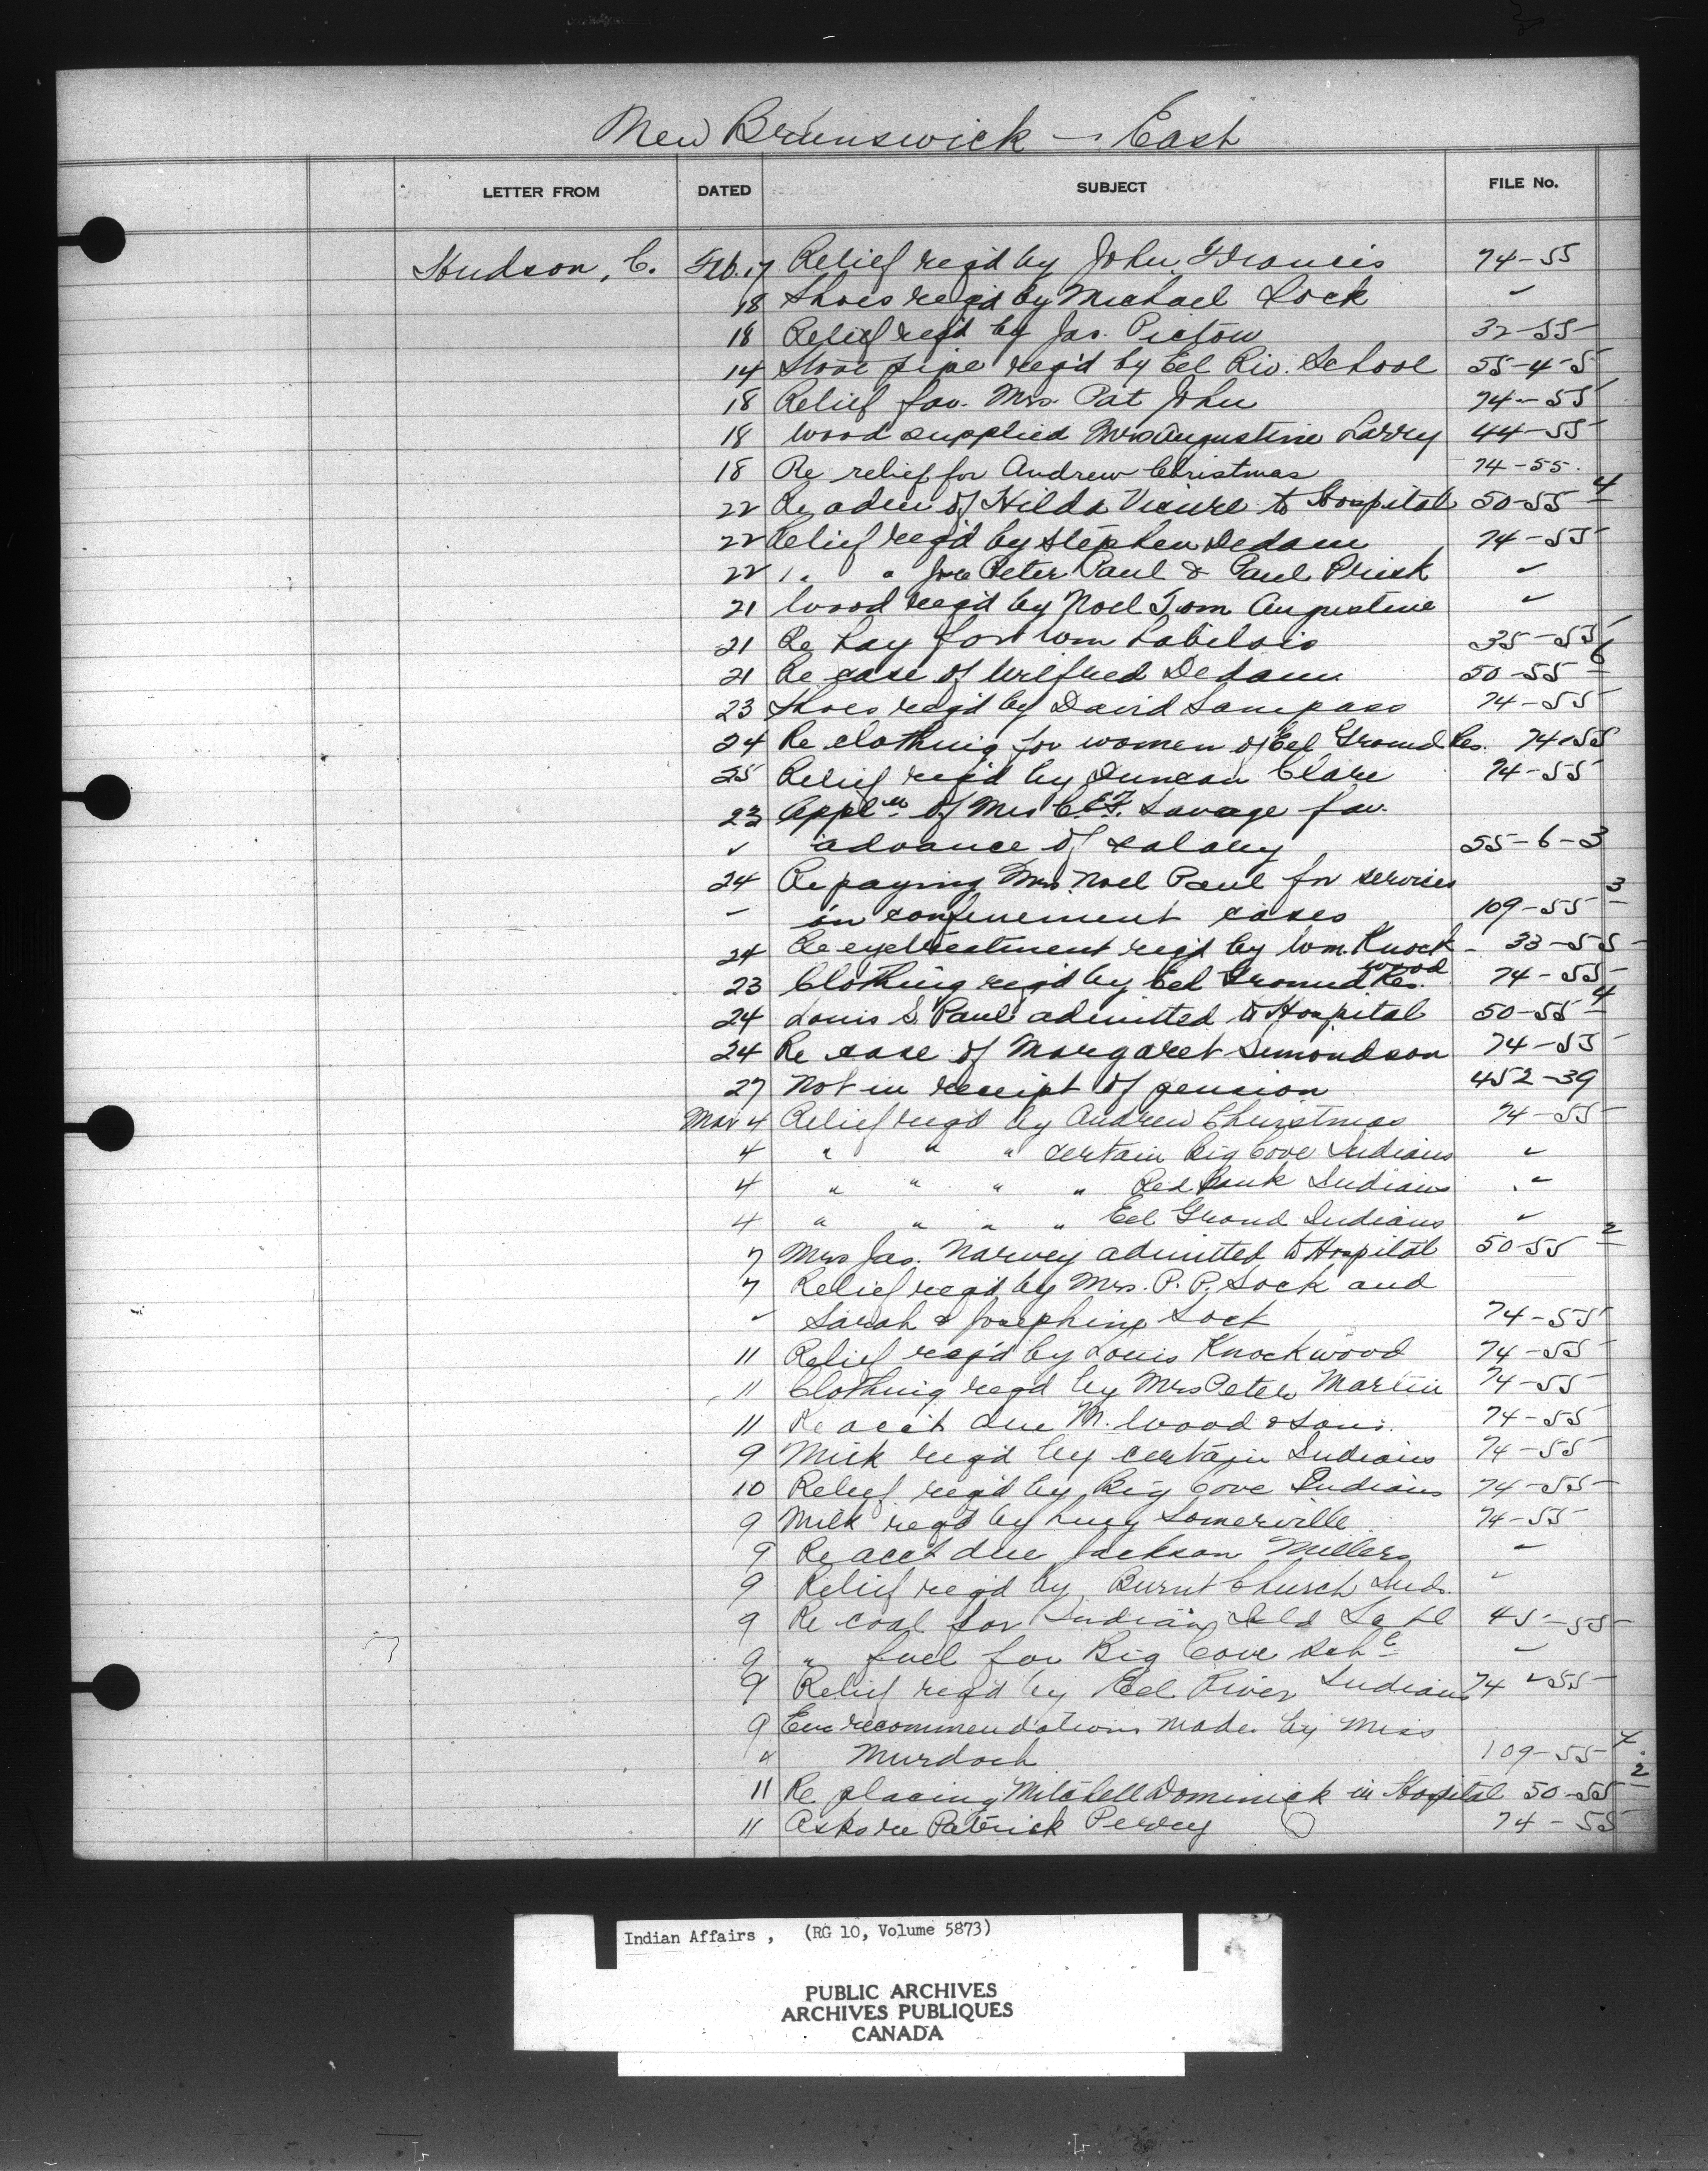 New Brunswick - East
LETTER FROM DATED SUBJECT FILE No.
Hudson, C. Feb. 17 Relief req'd by John Francis 74-55
18 Shoes req'd by Michael Sock ✓
18 Relief req'd by Jas. Pictou 32-55
14 Stove pipe req'd by Eel Riv. School 55-4-5
18 Relief for Mrs. Pat John 74-55
18 Wood supplied Mrs Augustine Larry 44-55
18 Re relief for Andrew Christmas 74-55.
22 Re adm of Hilda to Hospital 50-55 4
22 Relief req'd by Stephen Dedam 74-55
22 " " Joe Peter Paul & Paul ✓
21 Wood req'd by Noel Tom Augustine ✓
21 Re hay for Wm Labilois 35-55
21 Re case of Wilfred Dedam 50-55 6
23 Shoes req'd by David Sampass 74-55
24 Re clothing for women of Eel Ground Res. 74-55
25 Relief req'd by Duncan Clare 74-55
23 Appl'n of Mrs C. F. Savage for
✓ advance of salary 55-6-3
24 Re paying Mrs. Noel Paul for services
- in confinement cases 109-55 3
24 Re eye treatment req'd by Wm. Knock- 33-55
wood
23 Clothing req'd by Eel Ground Res. 74-55
24 Louis S. Paul admitted to Hospital 50-55 4
24 Re case of Margaret Simondson 74-55
27 Not in receipt of pension 452-39
Mar 4 Relief req'd by Andrew Christmas 74-55
4 " " " certain Big Cove Indians ✓
4 " " " " Red Bank Indians ✓
4 " " " " Eel Grond Indians ✓
7 Mrs Jas. Narvey admitted to Hospital 50-55 2
7 Relief req'd by Mrs. P. P. Sock and
✓ Sarah & Josephine Sock 74-55
11 Relief req'd by Louis Knockwood 74-55
11 Clothing req'd by Mrs Peter Martin 74-55
11 Re acc't due M. Wood & Sons. 74-55
9 Milk req'd by certain Indians 74-55
10 Relief req'd by Big Cove Indians 74-55
9 Milk req'd by Lucy Somerville 74-55
9 Re acct due Jackson Millers ✓
9 Relief req'd by Burnt Church Inds. ✓
9 Re coal for Indian 45-55
9 " fuel for Big Cove Sch ✓
9 Relief req'd by Eel River Indians 74-55
9 recommendations made by Miss
" Murdoch 109-55 4
11 Re placing Mitchell Dominick in Hospital 50-55 2
11 Asks re Patrick Perley 74-55
Indian Affairs , (RG 10, Volume 5873)
PUBLIC ARCHIVES
ARCHIVES PUBLIQUES
CANADA